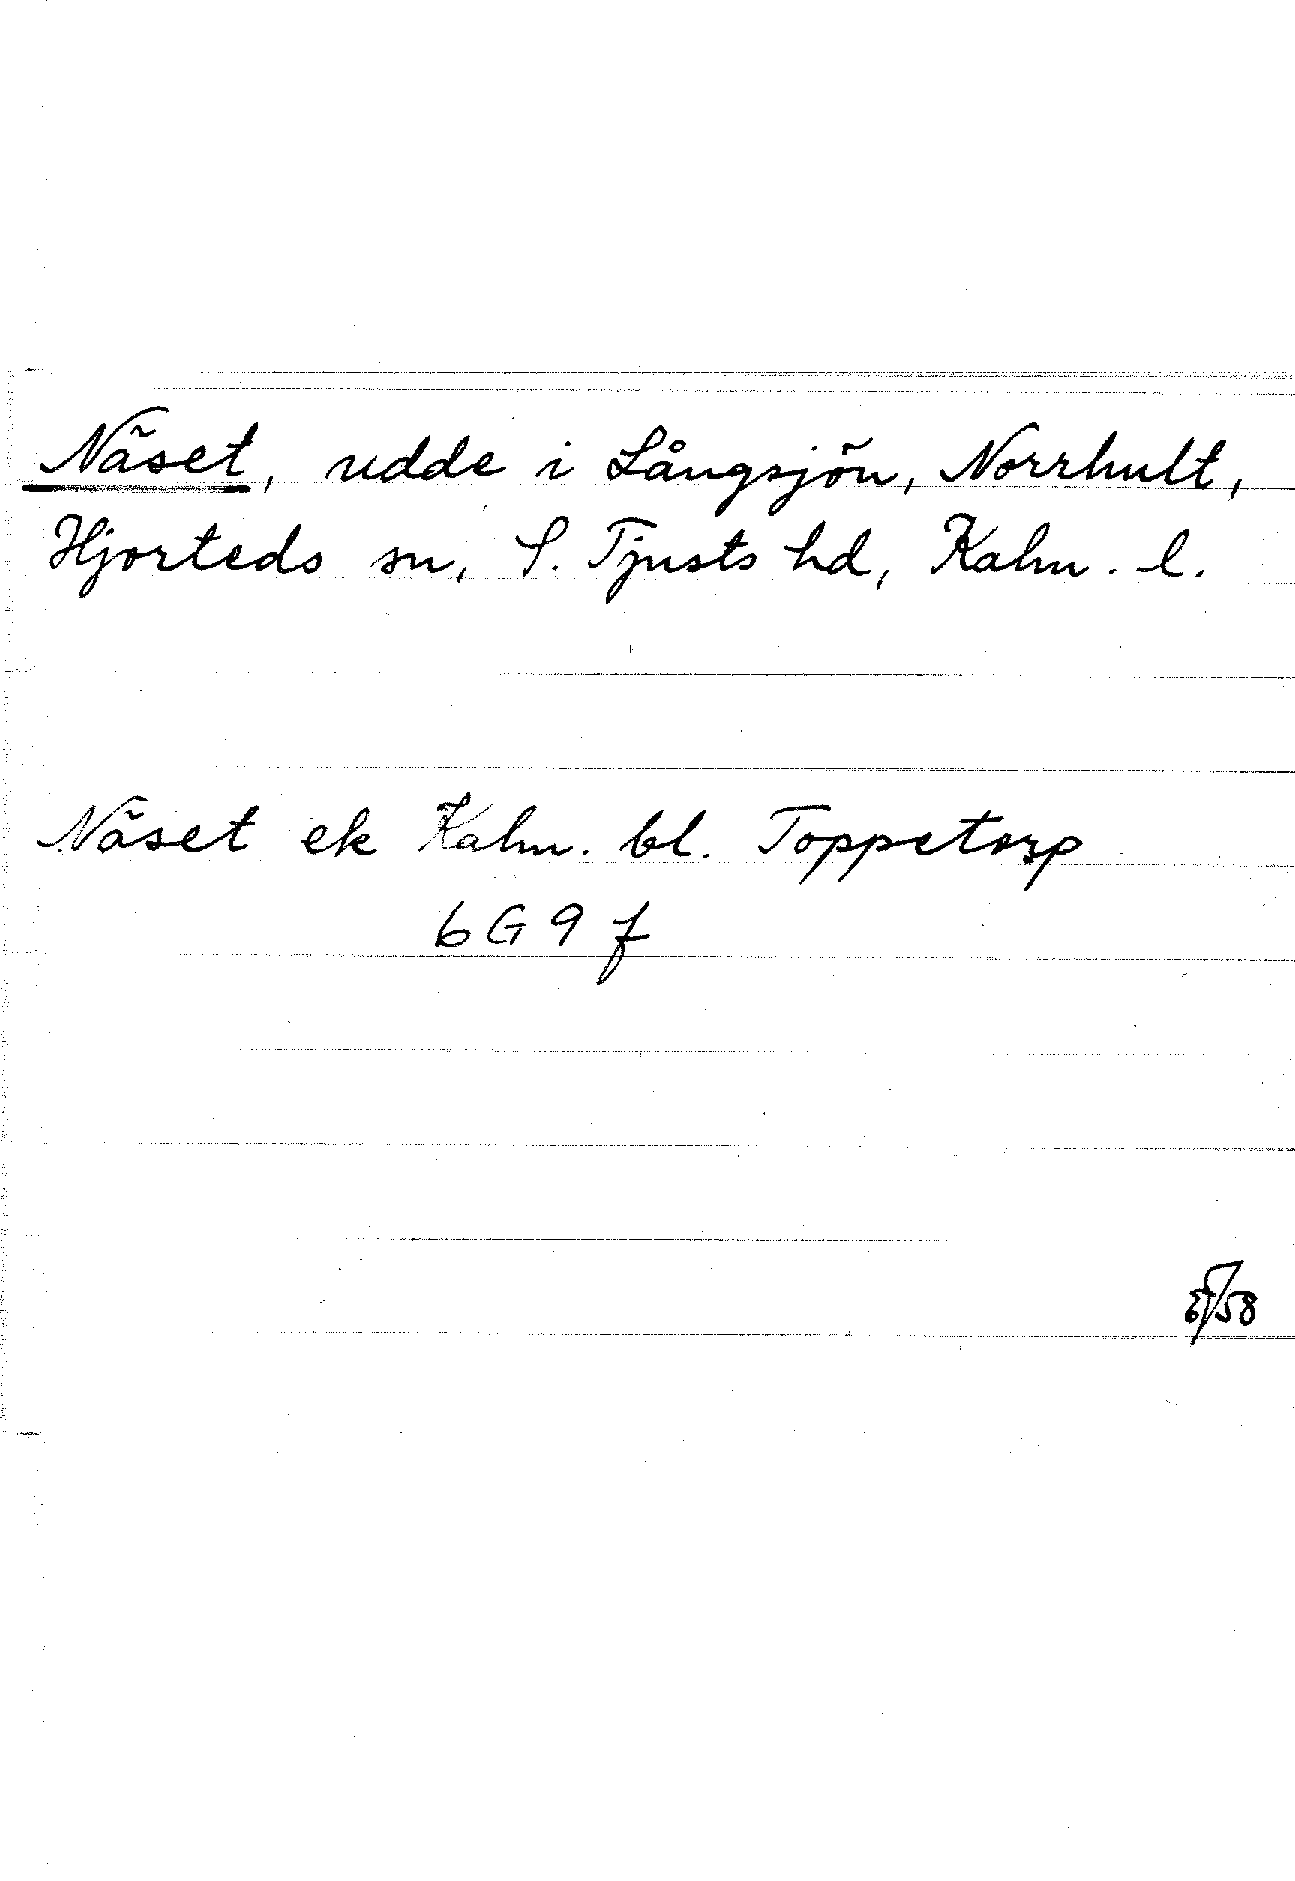 Näset, udde i Långsjön, Norrhult,
Hjorteds sn, S. Tjusts hd, Kalm. l.
Näset ek Kalm. bl. Toppetorp
6 G 9 f